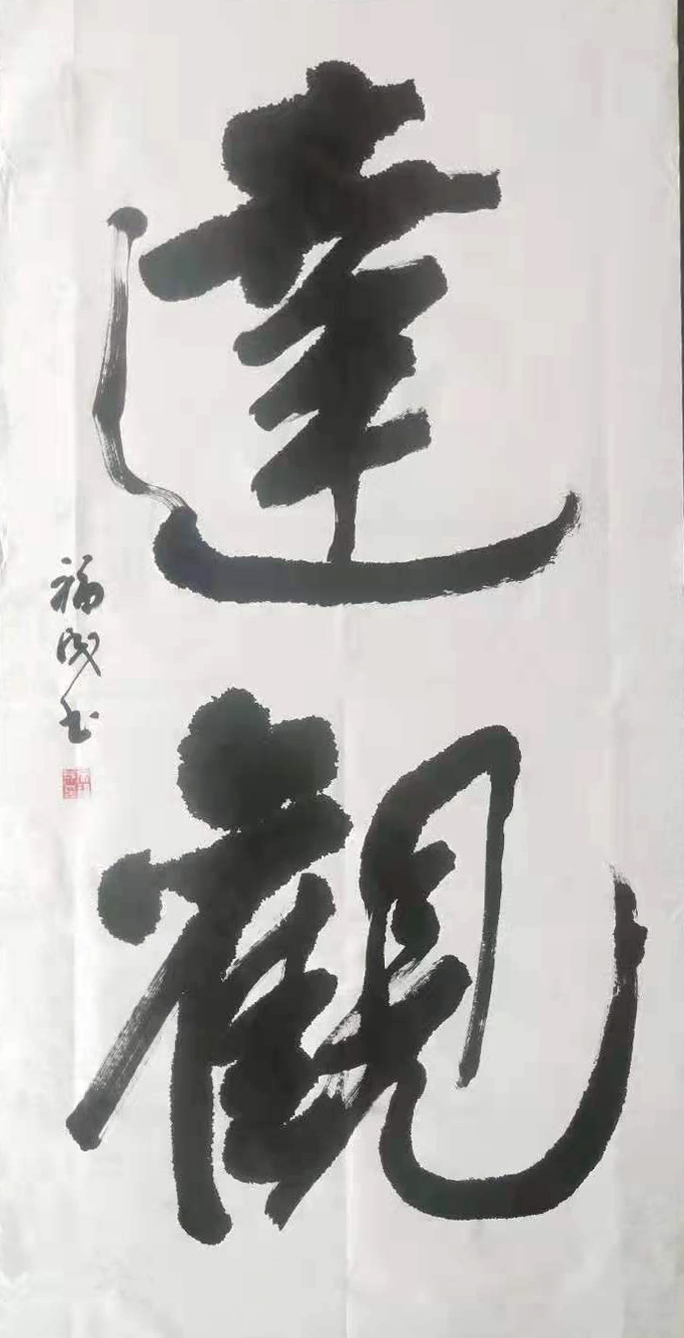 達觀
福成书